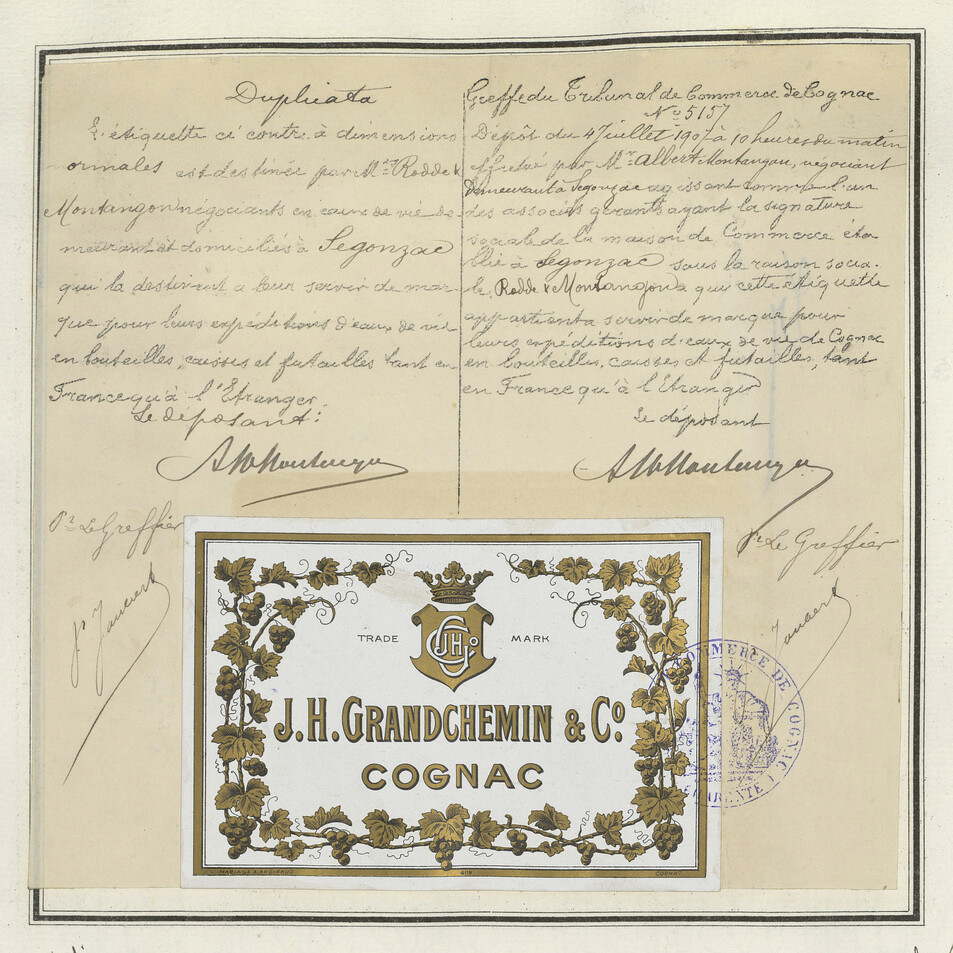 Duplicata
L'étiquette ci contre à dimensions
normales est destinée par Mrs Rodde &
Montangon négociants en eaux de vie de
meurant et domiciliés à Segonzac
qui la destinent a leur servir de mar
que pour leurs expéditions d'eaux de vie
en bouteilles, caisses et futailles tant en
France qu'à l'Etranger.
Le déposant:
Pr Le Greffier
Greffe du Tribunal de Commerce de Cognac
No 5157
Dépôt du 4 Juillet 1907 à 10 heures du matin
effectué par Mr Albert Montangon, négociant
demeurant à Segonzac agissant comme l'un
des associés gérants ayant la signature
sociale de la maison de Commerce éta
blie à Segonzac sous la raison socia-
le, Rodde & Montangon a que cette étiquette
appartient a servir de marque pour
leurs expéditions d'eaux de vie de Cognac
en bouteilles, caisses et futailles, tant
en France qu'à l'Etranger
Le déposant
Pr Le Greffier
TRADE MARK
JHG Co
J.H. GRANDCHEMIN & Co.
COGNAC
COGNAC
COMMERCE DE COGNAC
CHARENTE